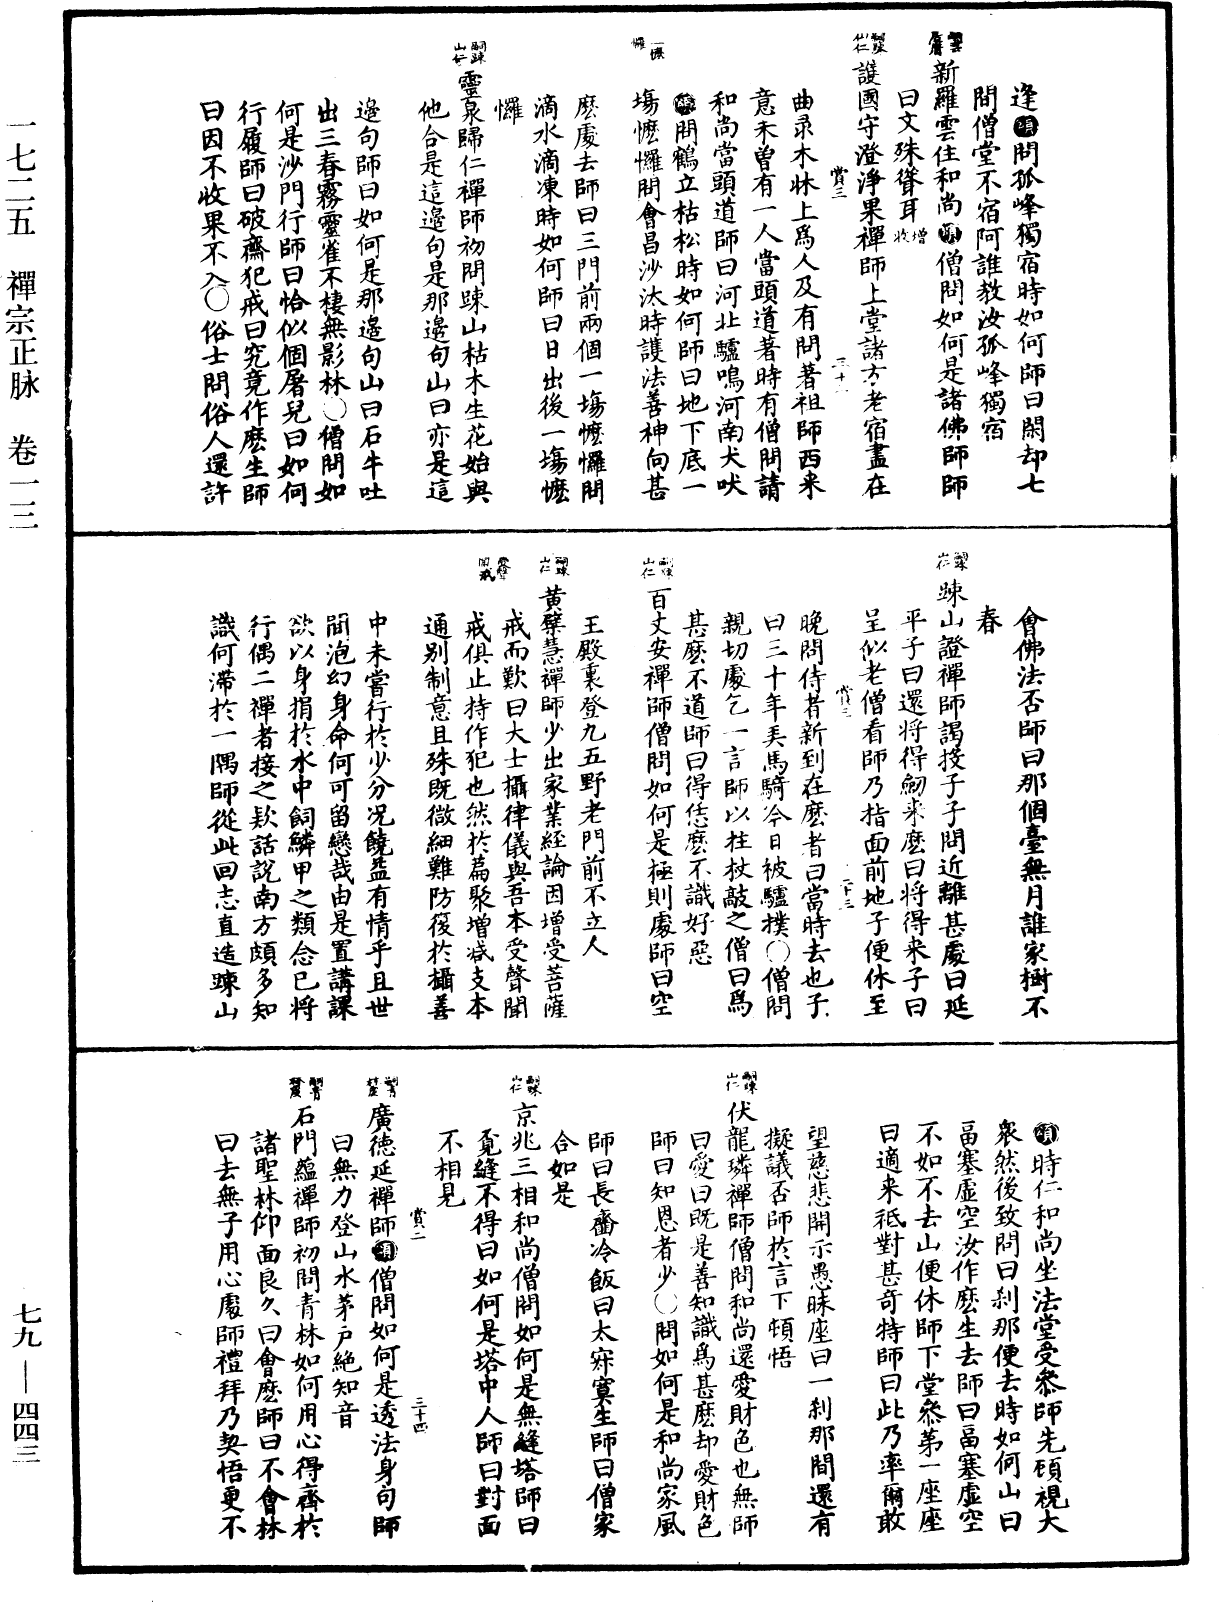 一七二五　禪宗正脉　卷一三
逢頌問孤峰獨宿時如何師曰閑却七
間僧堂不宿阿誰教汝孤峰獨宿
新羅雲住和尚頌僧問如何是諸佛師師
曰文殊聳耳
增收
嗣踈山仁
護國守澄淨果禪師上堂諸方老宿盡在
賞三
曲彔木牀上爲人及有問著祖師西来
意未曽有一人當頭道著時有僧問請
和尚當頭道師曰河北驢鳴河南犬吠
頌問鶴立枯松時如何師曰地下底一
塲懡㦬問會昌沙汰時護法善神向甚
麽處去師曰三門前兩個一塲懡㦬問
滴水滴凍時如何師曰日出後一塲懡
㦬
嗣踈山仁
靈泉歸仁禪師初問踈山枯木生花始與
他合是這邉句是那邉句山曰亦是這
邉句師曰如何是那邉句山曰石牛吐
出三春霧靈雀不棲無影林〇僧問如
何是沙門行師曰恰似個屠兒曰如何
行履師曰破齋犯戒曰究竟作麽生師
曰因不收果不入〇俗士問俗人還許
會佛法否師曰那個臺無月誰家樹不
春
嗣踈山仁
踈山證禪師謁投子子問近離甚處曰延
平子曰還将得劒来麽曰将得来子曰
呈似老僧看師乃指面前地子便休至
晚問侍者新到在麽者曰當時去也子
曰三十年弄馬騎今日被驢撲〇僧問
親切處乞一言師以柱杖敲之僧曰爲
甚麽不道師曰得恁麽不識好惡
嗣踈山仁
百丈安禪師僧問如何是極則處師曰空
王殿裏登九五野老門前不立人
嗣踈山仁
黄檗慧禪師少出家業経論因增受菩薩
戒而歎曰大士攝律儀與吾本受聲聞
戒俱止持作犯也然於篇聚增减支本
通别制意且殊既微細難防復於攝善
中未嘗行於少分况饒益有情乎且世
間泡幻身命何可留戀哉由是置講課
欲以身捐於水中飼鱗甲之類念已将
行偶二禪者接之欵話說南方頗多知
識何滯於一隅師從此回志直造踈山
頌時仁和尚坐法堂受叅師先顧視大
衆然後致問曰刹那便去時如何山曰
畐塞虚空汝作麽生去師曰畐塞虚空
不如不去山便休師下堂叅第一座座
曰適来祗對甚奇特師曰此乃率爾敢
望慈悲開示愚昧座曰一刹那間還有
擬議否師於言下頓悟
嗣踈山仁
伏龍璘禪師僧問和尚還愛財色也無師
曰愛曰既是善知識爲甚麽却愛財色
師曰知恩者少〇問如何是和尚家風
師曰長齏冷飯曰太寂寞生師曰僧家
合如是
嗣踈山仁
京兆三相和尚僧問如何是無縫塔師曰
覔縫不得曰如何是塔中人師曰對面
不相見
賞二
廣德延禪師頌僧問如何是透法身句師
三十四
曰無力登山水茅户絶知音
石門藴禪師初問青林如何用心得齊於
諸聖林仰面良久曰會麽師曰不會林
曰去無子用心處師禮拜乃契悟更不
七九—四四三